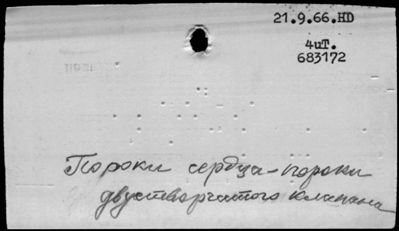 21.9.66.HD
4иТ.
683172
Пороки сердца - пороки
двустворчатого клапана